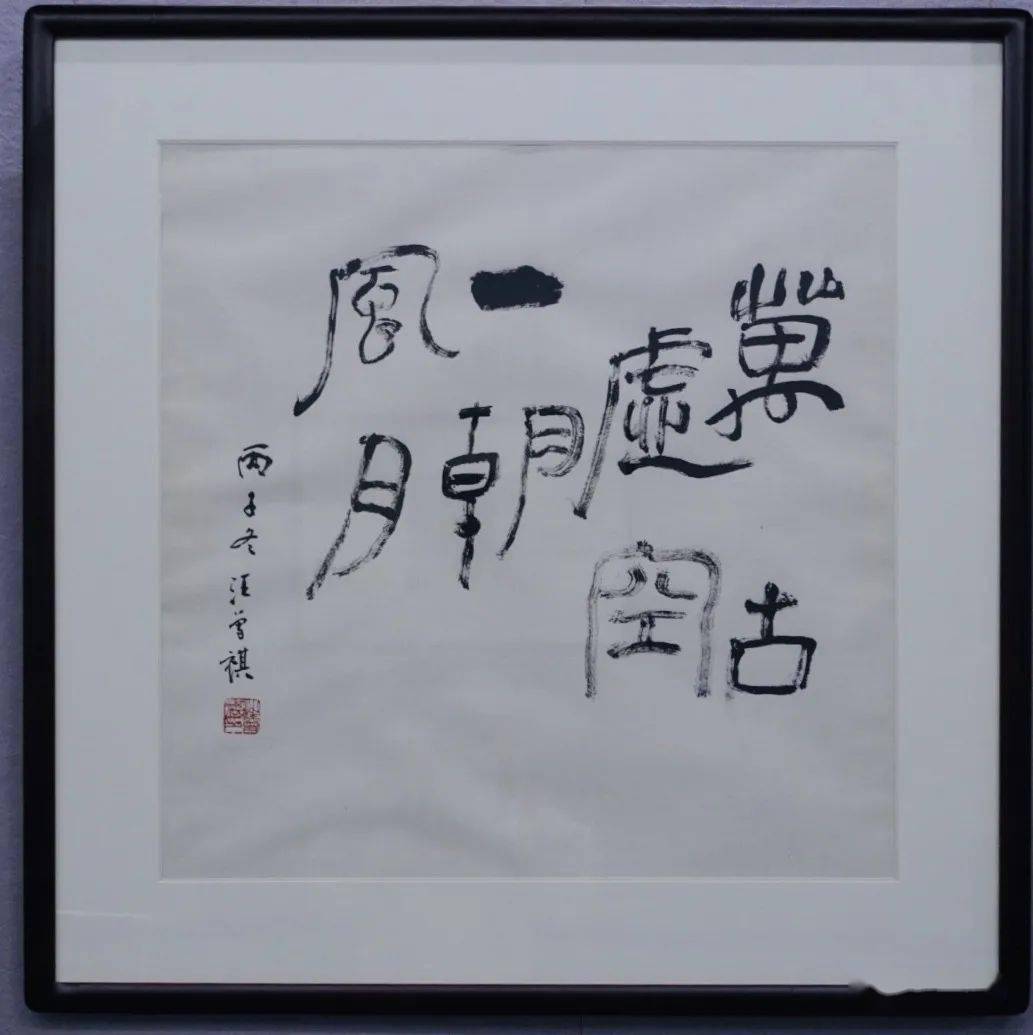 萬古
虛空
一朝
風月
丙子冬 汪曾祺